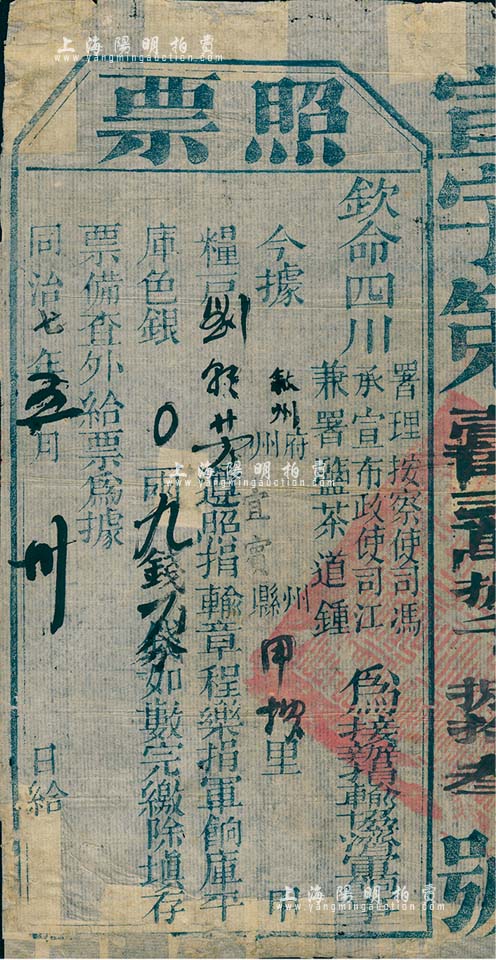 上海陽明拍賣
www.yangmingauction.com
照票
欽命四川
署理按察使司馮
承宣布政使司江
兼署鹽茶道鍾
為接續捐輸協濟軍
今據
敘州府
州宜賓縣
州
甲
里
甲
糧戶劉
遵照捐輸章程樂捐軍餉庫平
庫色銀
0兩九錢
分如數完繳除填存
票備查外給票為據
同治七年五月
卅
日給
宜字第
號
上海陽明拍賣
www.yangmingauction.com
上海陽明拍賣
www.yangmingauction.com